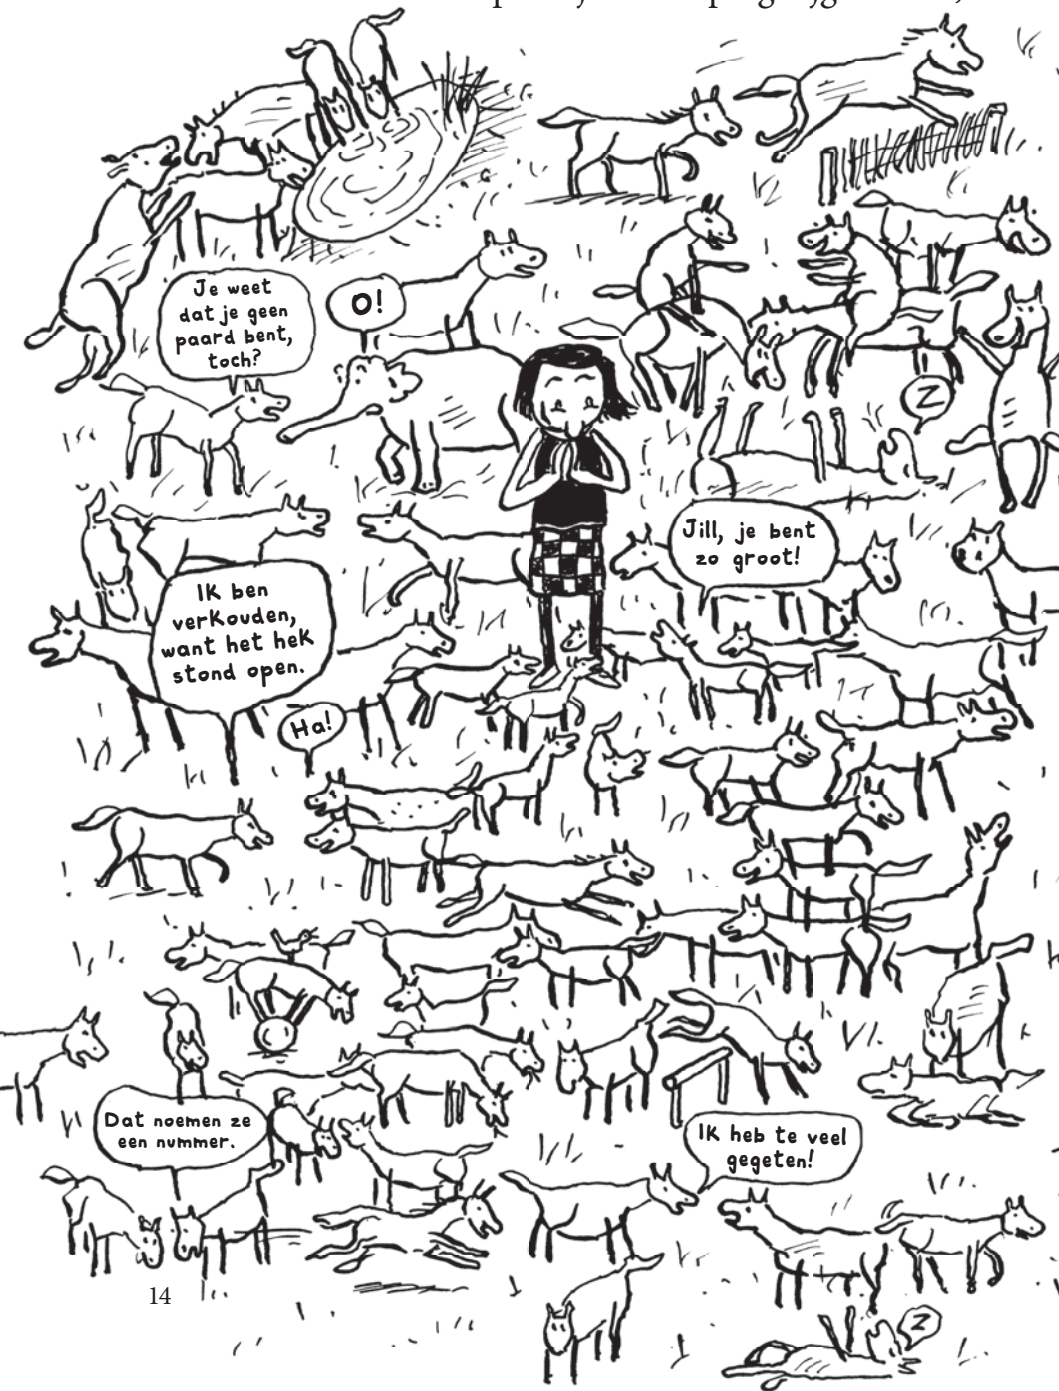 Je weet
dat je geen
paard bent,
toch?
O!
Z
Jill, je bent
zo groot!
Ik ben
verkouden,
want het hek
stond open.
Ha!
Dat noemen ze
een nummer.
Ik heb te veel
gegeten!
14
Z